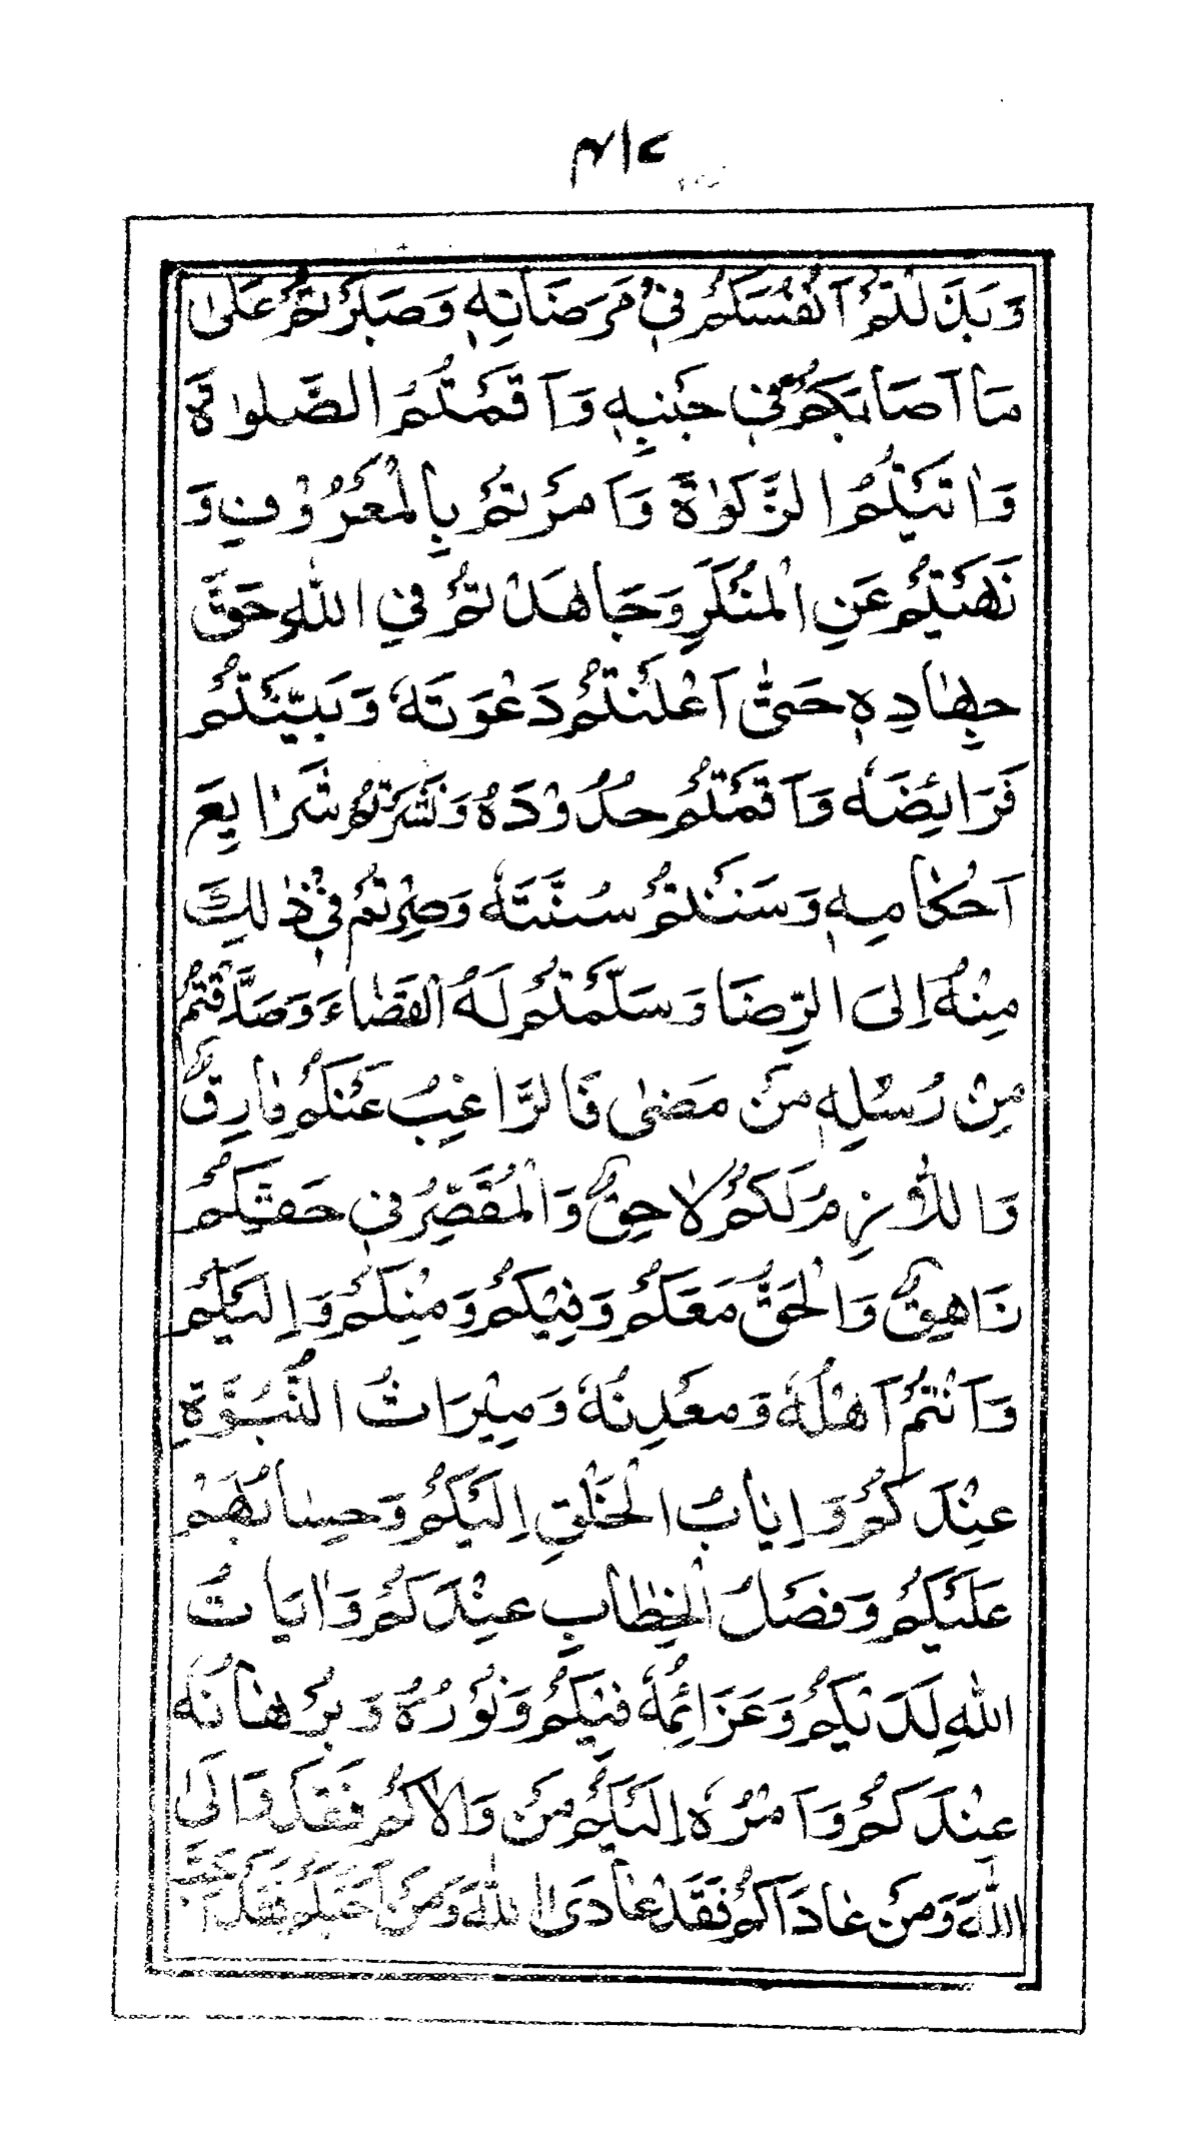 وَبَذَلْتُمْ اَنْفُسَكُمْ فِیْ مَرْضَاتِهٖ وَصَبَرْتُمْ عَلٰی
مَا اَصَابَكُمْ فِیْ جَنْبِهٖ وَاَقَمْتُمُ الصَّلوٰةَ
وَاٰتَیْتُمُ الزَّكوٰةَ وَاَمَرْتُمْ بِالْمَعْرُوْفِ وَ
نَهَیْتُمْ عَنِ الْمُنْكَرِ وَجَاهَدْتُمْ فِی اللّٰهِ حَقَّ
جِهَادِهٖ حَتّٰی اَعْلَنْتُمْ دَعْوَتَهٗ وَبَیَّنْتُمْ
فَرَائِضَهٗ وَاَقَمْتُمْ حُدُوْدَهُ وَنَشَرْتُمْ شَرَایِعَ
اَحْكَامِهٖ وَسَنَنْتُمْ سُنَّتَهٗ وَصِرْتُمْ فِیْ ذٰلِكَ
مِنْهُ اِلَی الرِّضَا وَسَلَّمْتُمْ لَهُ الْقَضَاءَ وَصَدَّقْتُمْ
مِنْ رُسُلِهٖ مَنْ مَضٰی فَالرَّاغِبُ عَنْكُمْ مَارِقٌ
وَاللَّازِمُ لَكُمْ لَاحِقٌ وَالْمُقَصِّرُ فِیْ حَقِّكُمْ
زَاهِقٌ وَالْحَقُّ مَعَكُمْ وَفِیْكُمْ وَمِنْكُمْ وَاِلَیْكُمْ
وَاَنْتُمْ اَهْلُهٗ وَمَعْدِنُهٗ وَمِیْرَاثُ النُّبُوَّةِ
عِنْدَكُمْ وَاِیَابُ الْخَلْقِ اِلَیْكُمْ وَحِسَابُهُمْ
عَلَیْكُمْ وَفَصْلُ الْخِطَابِ عِنْدَكُمْ وَاٰیَاتُ
اللّٰهِ لَدَیْكُمْ وَعَزَائِمُهٗ فِیْكُمْ وَنُوْرُهٗ وَبُرْهَانُهٗ
عِنْدَكُمْ وَاَمْرُهٗ اِلَیْكُمْ مَنْ وَالَاكُمْ فَقَدْ وَالَی
اللّٰهَ وَمَنْ عَادَاكُمْ فَقَدْ عَادَی اللّٰهَ وَمَنْ اَحَبَّكُمْ فَقَدْ اَحَبَّ